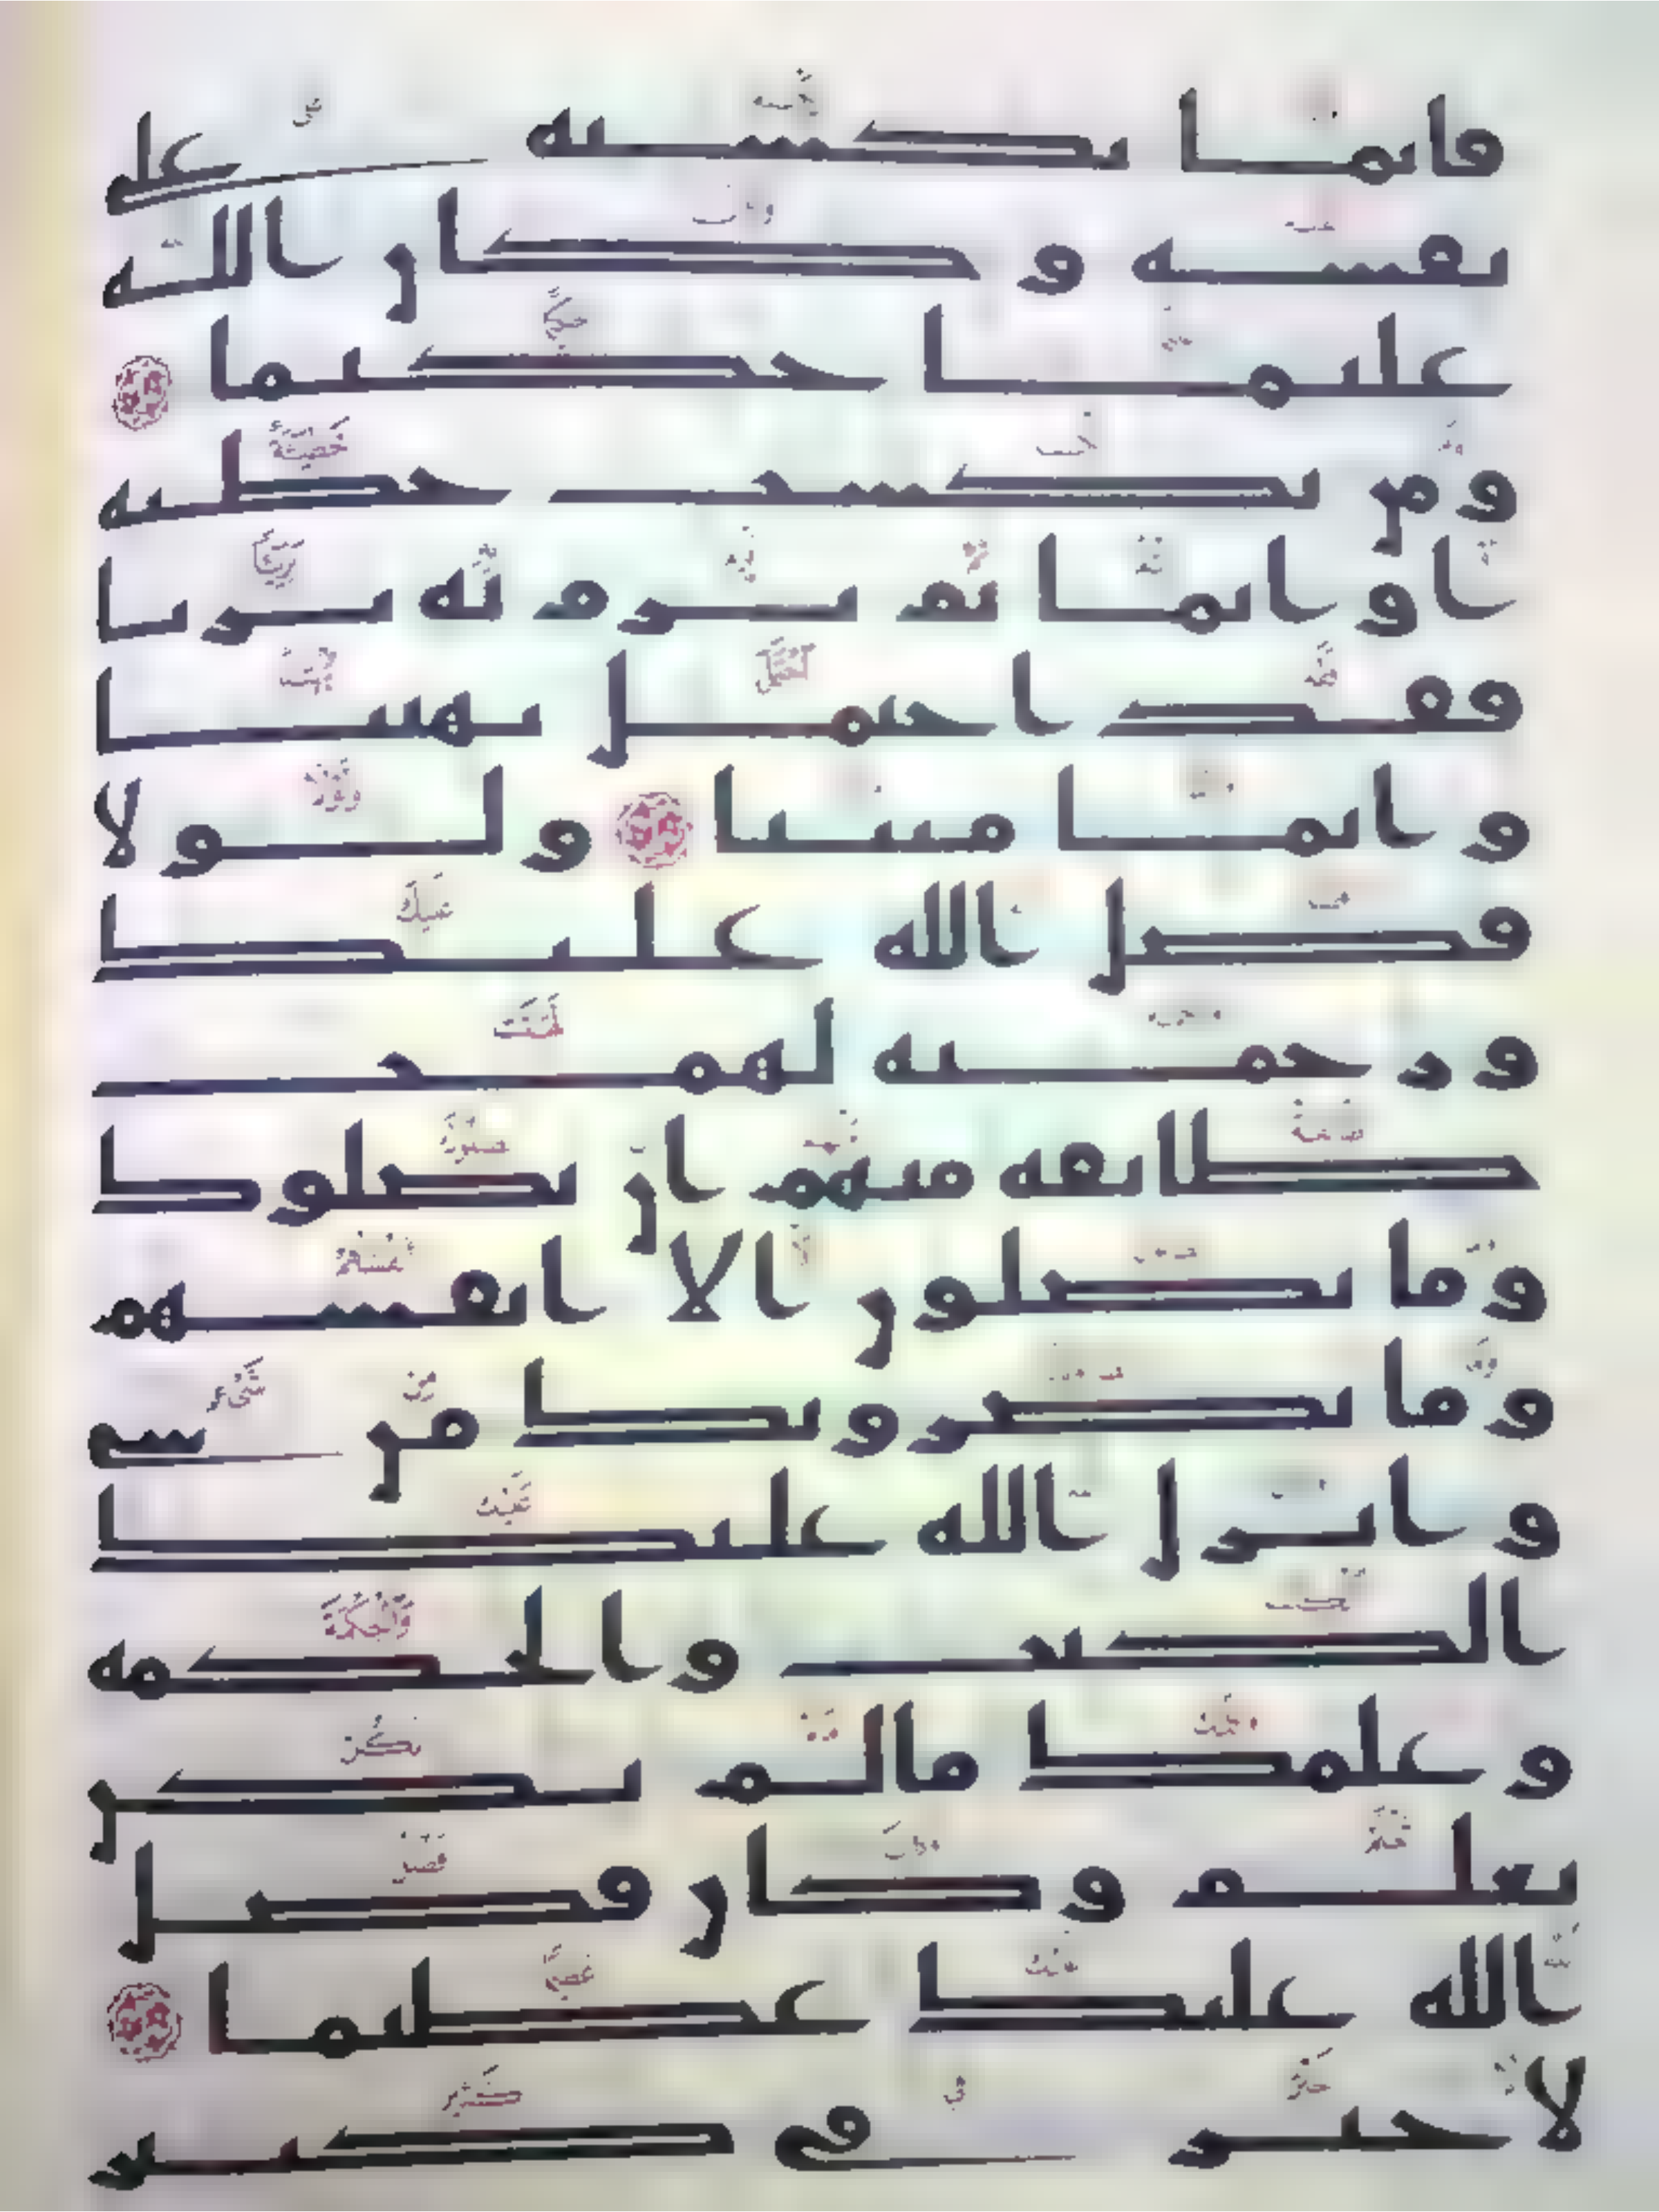 فانما يكسبه على
نفسه وكان الله
عليما حكيما
ومن يكسب خطيئة
او اثما ثم يرم به بريئا
فقد احتمل بهتنا
واثما مبينا ولولا
فضل الله عليك
ورحمته لهمت
طائفة منهم ان يضلوك
وما يضلون الا انفسهم
وما يضرونك من شيء
وانزل الله عليك
الكتب والحكمة
وعلمك ما لم تكن
تعلم وكان فضل
الله عليك عظيما
لا خير في كثير